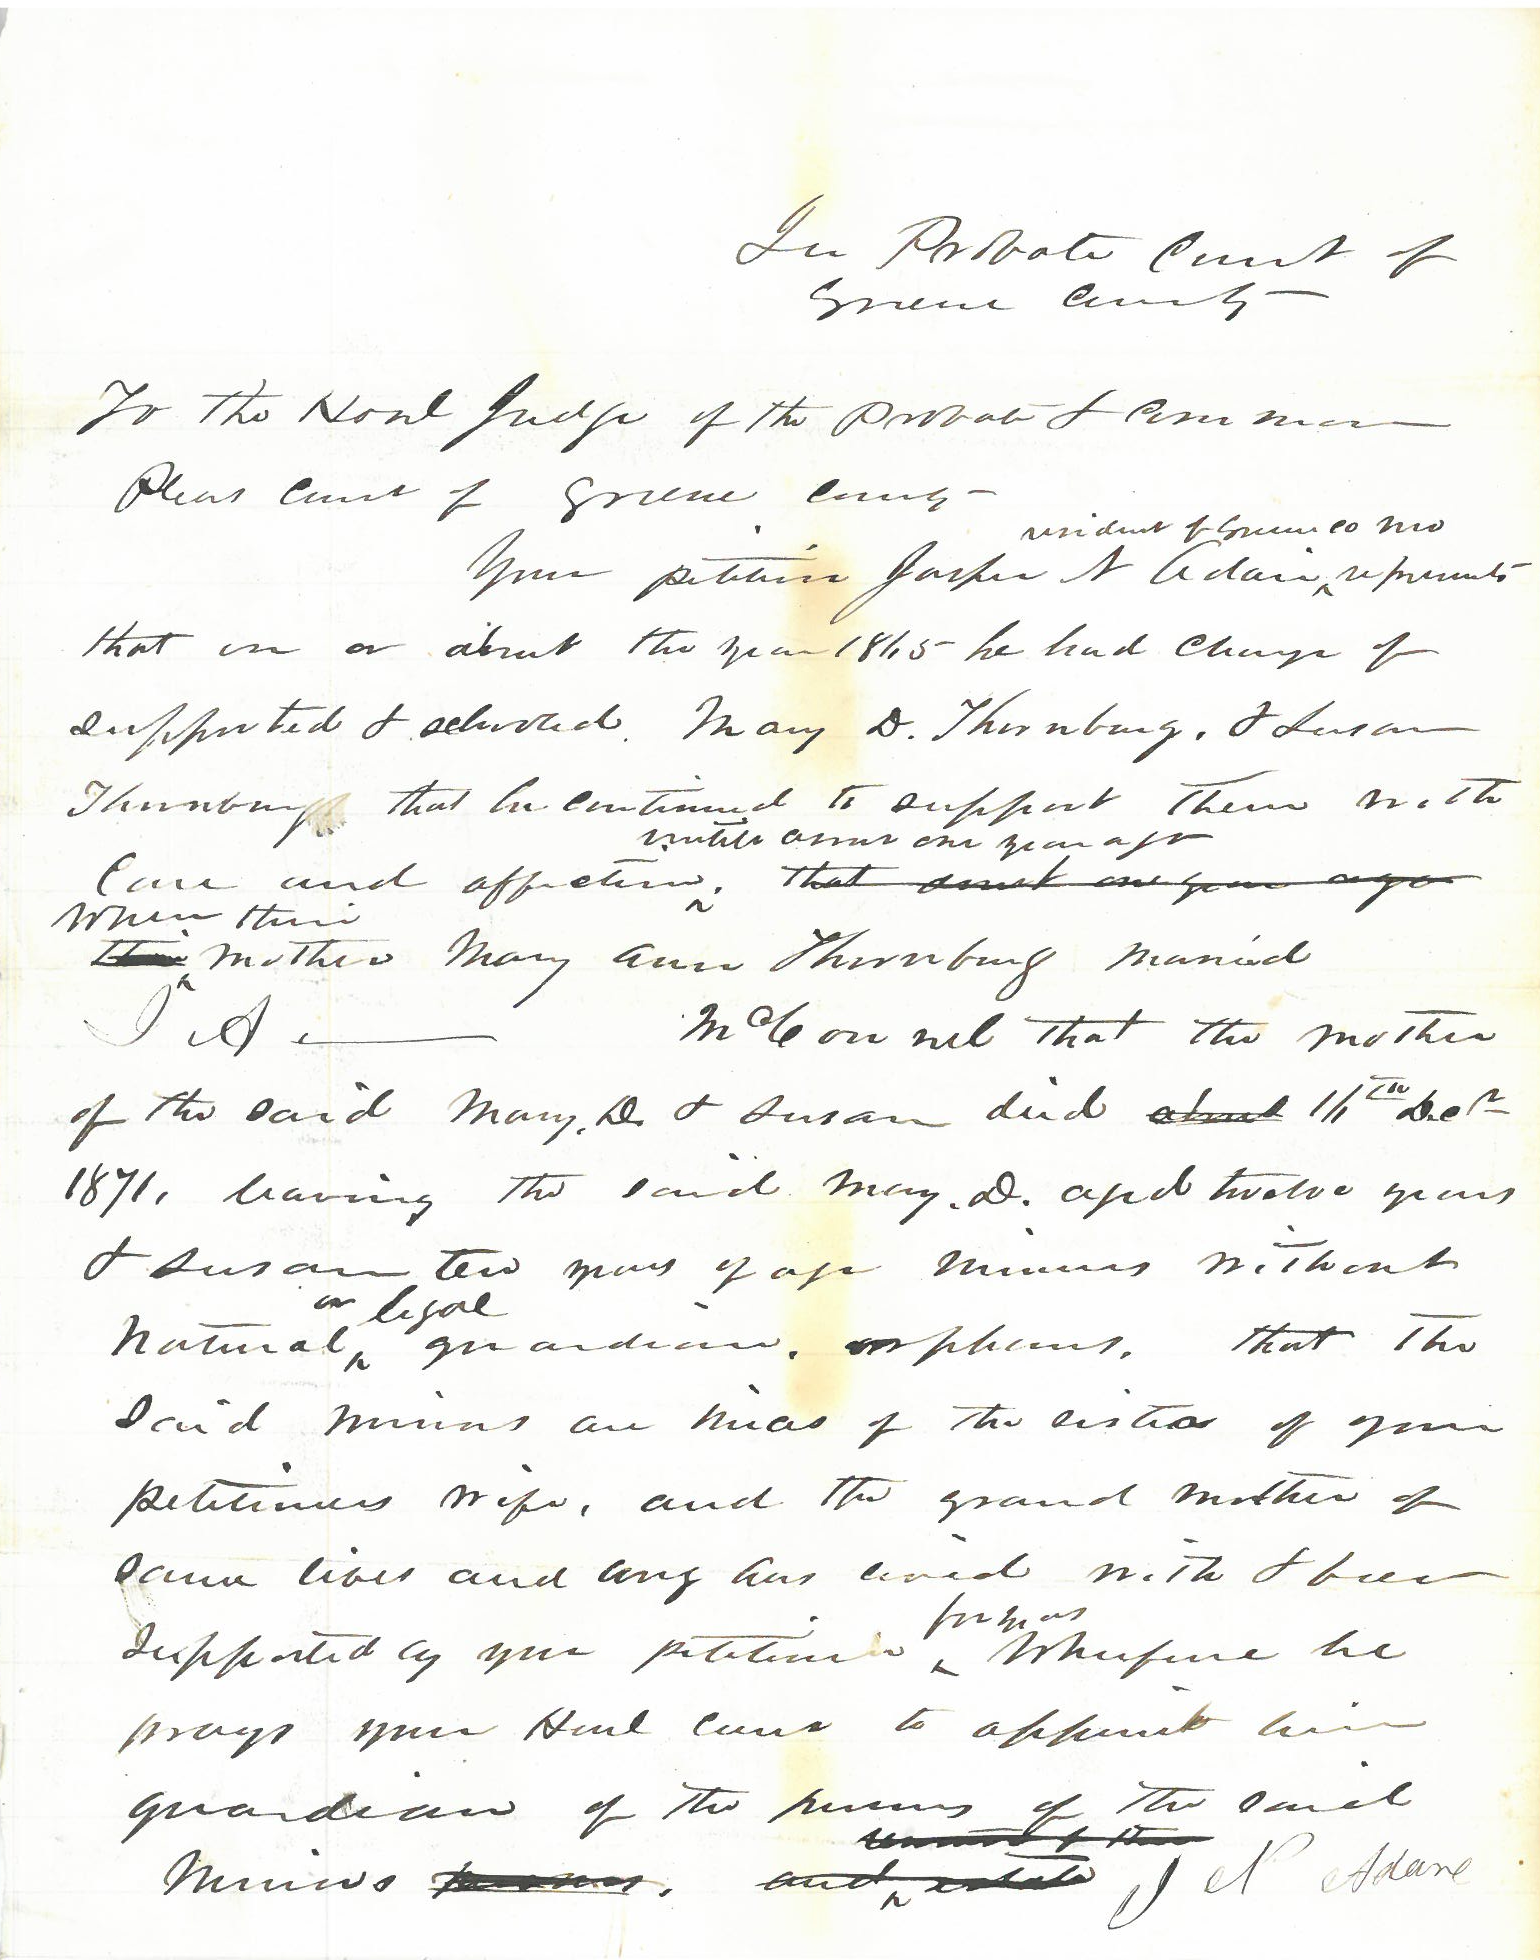 In Probate Court of
Greene County
To the Honl Judge of the Probate & Common
Pleas Court of Greene County
resident of Greene co Mo
Your petitioner Jasper N Adair represents
that on or about the year 1865 he had charge of
supported & schooled. Mary D. Thornburg, & Susan
Thornburg that he continued to support them with
untill about one year ago
Care and affection. that about one year ago
When their
their mother Mary Ann Thornburg married
J A McConnel that the mother
of the said Mary. D. & Susan died about 16th Decr
1871, leaving the said Mary. D. aged twelve years
& Susan ten years of age minors without
or legal
Natural guardian. orphans. that the
Said minors are nieces of the sister of your
petitioners wife, and the grand mother of
same lives and long has lived with & been
for years
Supported by your petitioner Wherefore he
prays your Honl court to appoint him
guardian of the persons of the said
Minors persons. and estate J N Adare